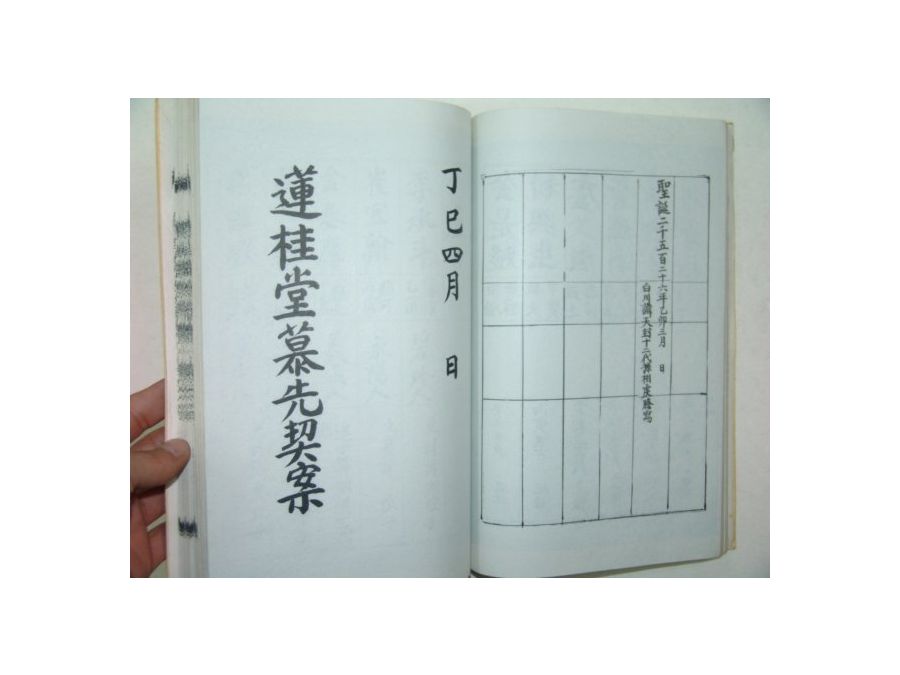 聖誕二千五百二十六年乙卯三月 日
白川 天封十二代 相 謄寫
丁巳四月 日
蓮桂堂慕先契案